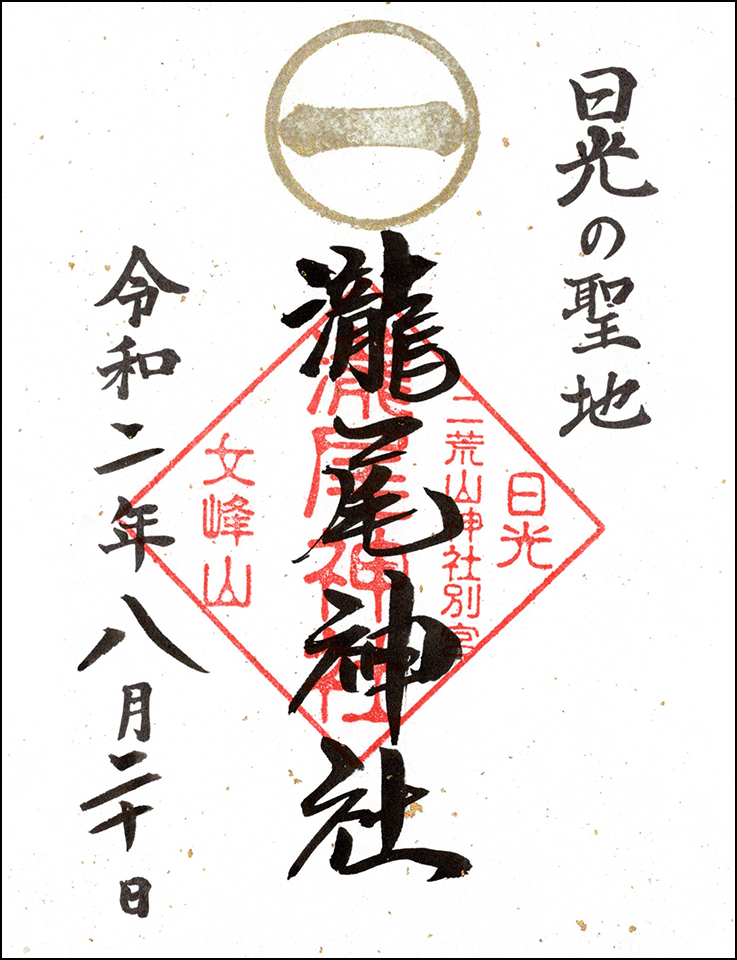 日光の聖地
一
瀧尾神社
日光
二荒山神社別宮
瀧尾神社
女峰山
令和二年八月二十日